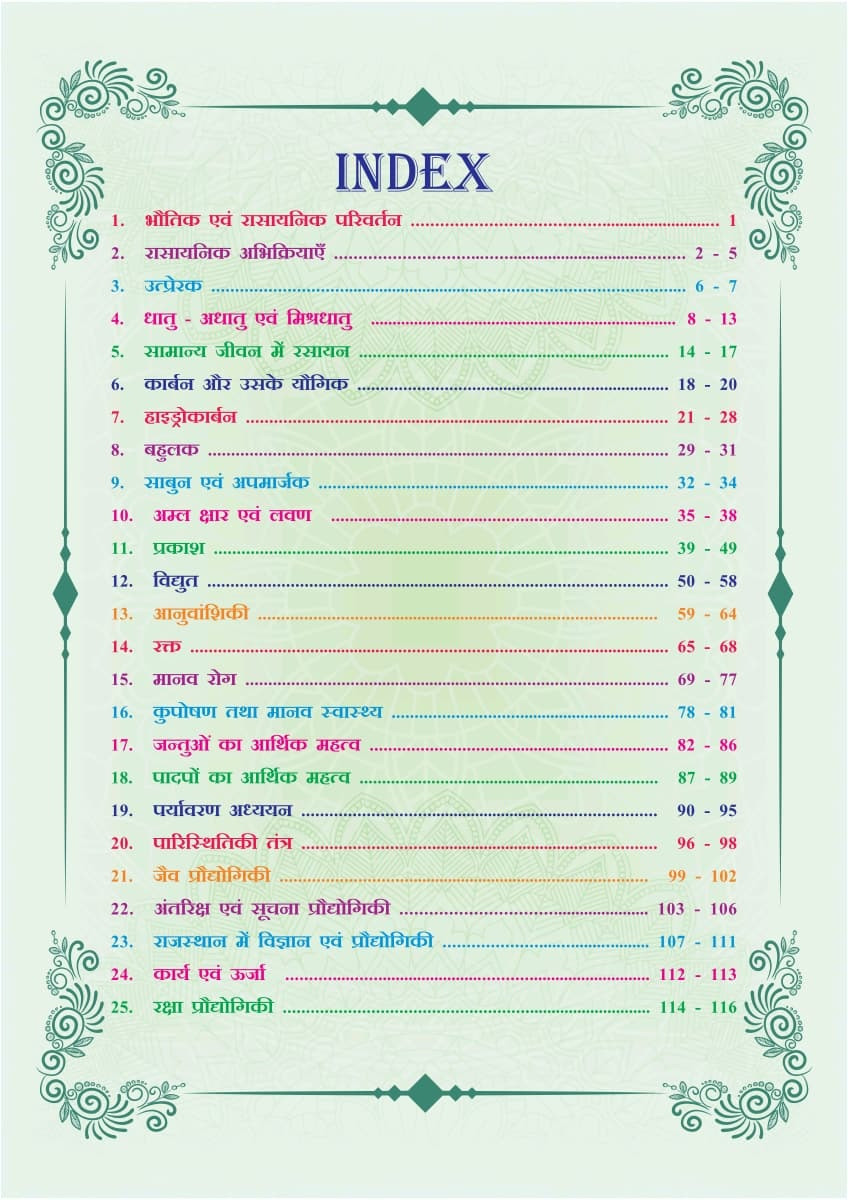 INDEX
1. भौतिक एवं रासायनिक परिवर्तन ........................................................... 1
2. रासायनिक अभिक्रियाएँ ................................................................... 2 - 5
3. उत्प्रेरक .......................................................................................... 6 - 7
4. धातु - अधातु एवं मिश्रधातु .......................................................... 8 - 13
5. सामान्य जीवन में रसायन ........................................................... 14 - 17
6. कार्बन और उसके यौगिक ........................................................... 18 - 20
7. हाइड्रोकार्बन ................................................................................ 21 - 28
8. बहुलक ....................................................................................... 29 - 31
9. साबुन एवं अपमार्जक .................................................................. 32 - 34
10. अम्ल क्षार एवं लवण ................................................................ 35 - 38
11. प्रकाश ...................................................................................... 39 - 49
12. विद्युत ....................................................................................... 50 - 58
13. आनुवांशिकी ............................................................................ 59 - 64
14. रक्त .......................................................................................... 65 - 68
15. मानव रोग ................................................................................ 69 - 77
16. कुपोषण तथा मानव स्वास्थ्य ..................................................... 78 - 81
17. जन्तुओं का आर्थिक महत्व ......................................................... 82 - 86
18. पादपों का आर्थिक महत्व ......................................................... 87 - 89
19. पर्यावरण अध्ययन .................................................................... 90 - 95
20. पारिस्थितिकी तंत्र .................................................................... 96 - 98
21. जैव प्रौद्योगिकी ...................................................................... 99 - 102
22. अंतरिक्ष एवं सूचना प्रौद्योगिकी ................................................ 103 - 106
23. राजस्थान में विज्ञान एवं प्रौद्योगिकी ........................................ 107 - 111
24. कार्य एवं ऊर्जा ..................................................................... 112 - 113
25. रक्षा प्रौद्योगिकी ..................................................................... 114 - 116